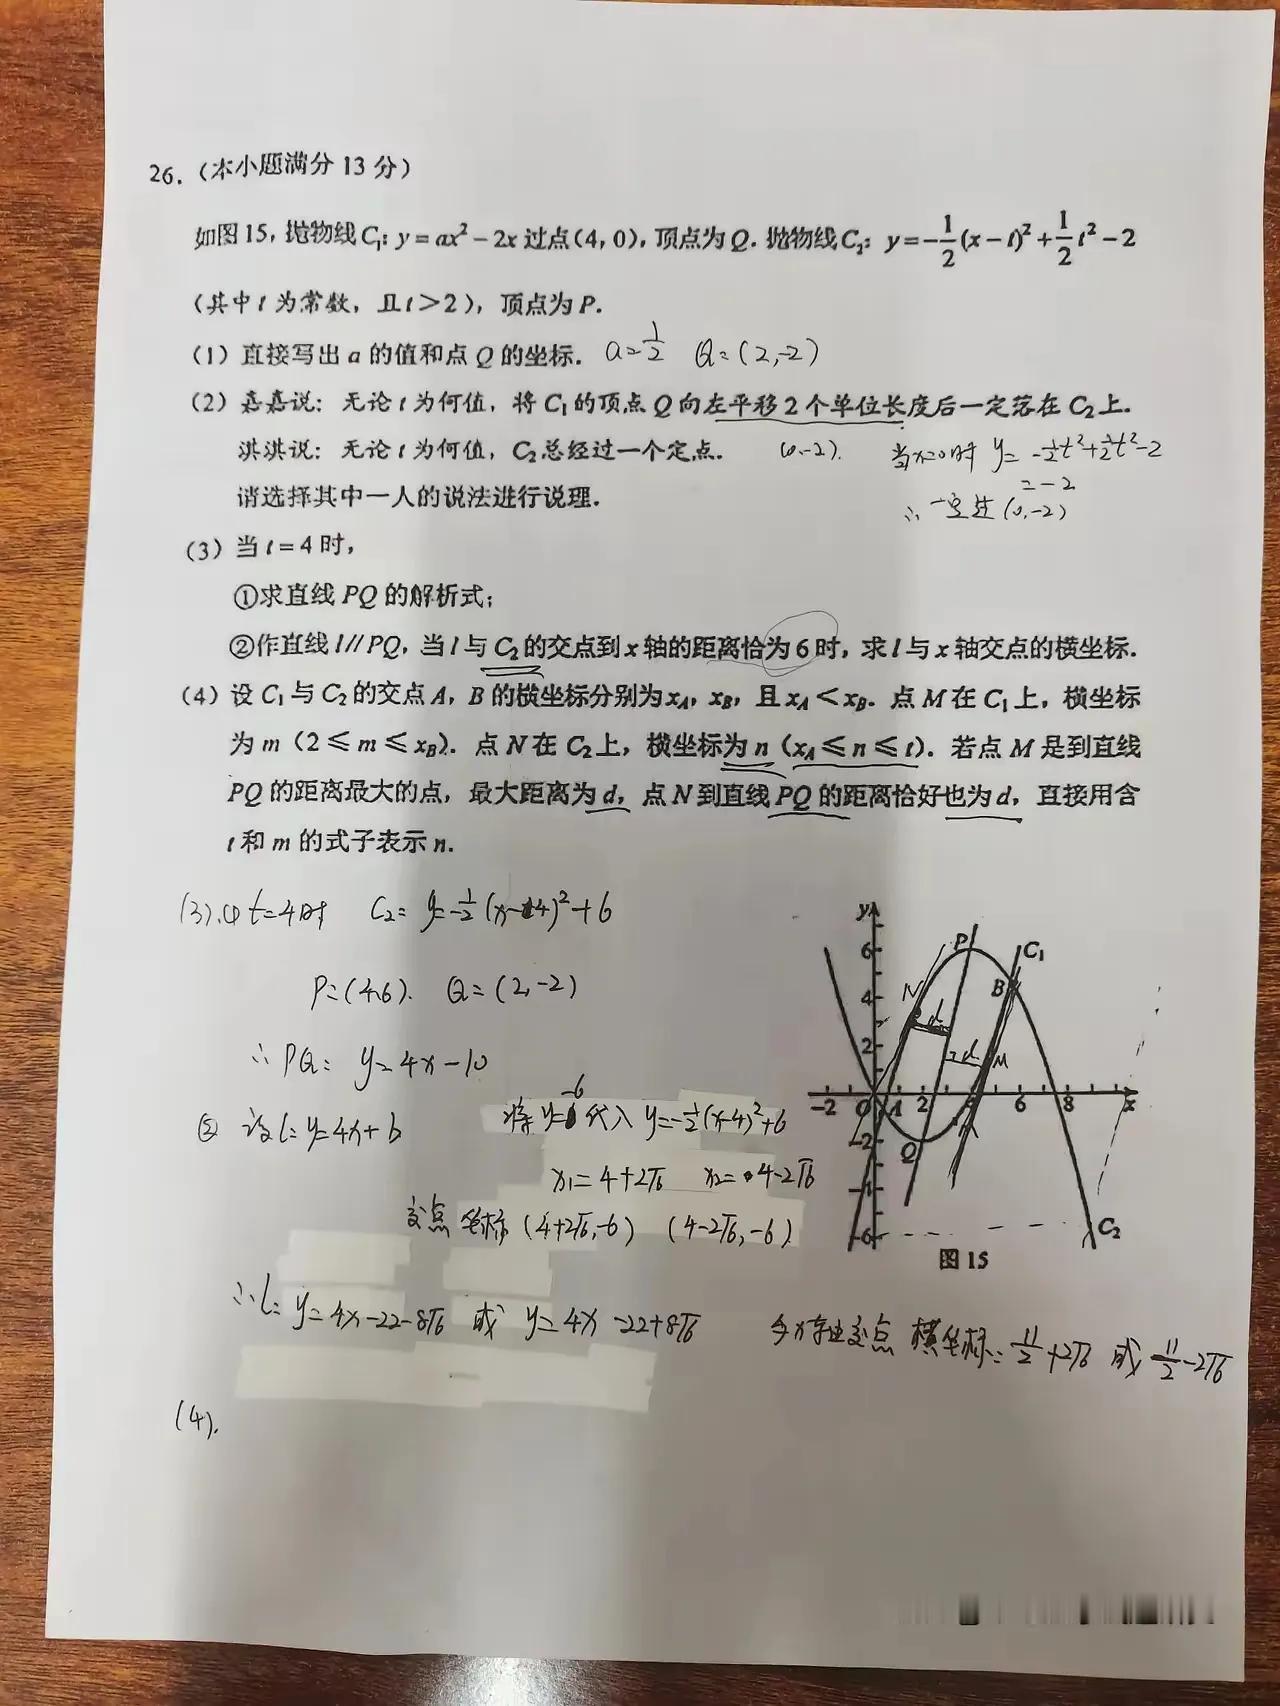 26.（本小题满分 13 分）
如图 15, 抛物线 C₁: y = ax² − 2x 过点(4, 0), 顶点为 Q. 抛物线 C₂: y = −1/2(x − t)² + 1/2t² − 2
（其中 t 为常数，且 t > 2），顶点为 P.
（1）直接写出 a 的值和点 Q 的坐标. a=1/2 Q=(2,-2)
（2）嘉嘉说：无论 t 为何值，将 C₁ 的顶点 Q 向左平移 2 个单位长度后一定落在 C₂ 上.
淇淇说：无论 t 为何值，C₂ 总经过一个定点. (0,-2). 当x=0时 y=-1/2t²+1/2t²-2
=-2
请选择其中一人的说法进行说理. ∴一定过(0,-2)
（3）当 t = 4 时，
①求直线 PQ 的解析式；
②作直线 l // PQ, 当 l 与 C₂ 的交点到 x 轴的距离恰为 6 时，求 l 与 x 轴交点的横坐标.
（4）设 C₁ 与 C₂ 的交点 A，B 的横坐标分别为 xA，xB，且 xA < xB. 点 M 在 C₁ 上，横坐标
为 m（2 ≤ m ≤ xB）. 点 N 在 C₂ 上，横坐标为 n（xA ≤ n ≤ t）. 若点 M 是到直线
PQ 的距离最大的点，最大距离为 d，点 N 到直线 PQ 的距离恰好也为 d，直接用含
t 和 m 的式子表示 n.
(3).① t=4时 C₂= y=-1/2(x-4)²+6
P=(4,6). Q=(2,-2)
∴PQ= y=4x-10
② 设l= y=4x+b 将y=-6代入 y=-1/2(x-4)²+6
x₁=4+2√6 x₂=4-2√6
交点坐标 (4+2√6,-6) (4-2√6,-6)
∴l= y=4x-22-8√6 或 y=4x-22+8√6 与x轴交点 横坐标: 11/2+2√6 或 11/2-2√6
(4).
y
6
4
2
-2
O
A
2
6
8
x
-2
-6
P
C₁
N
B
d
d
M
Q
C₂
图 15